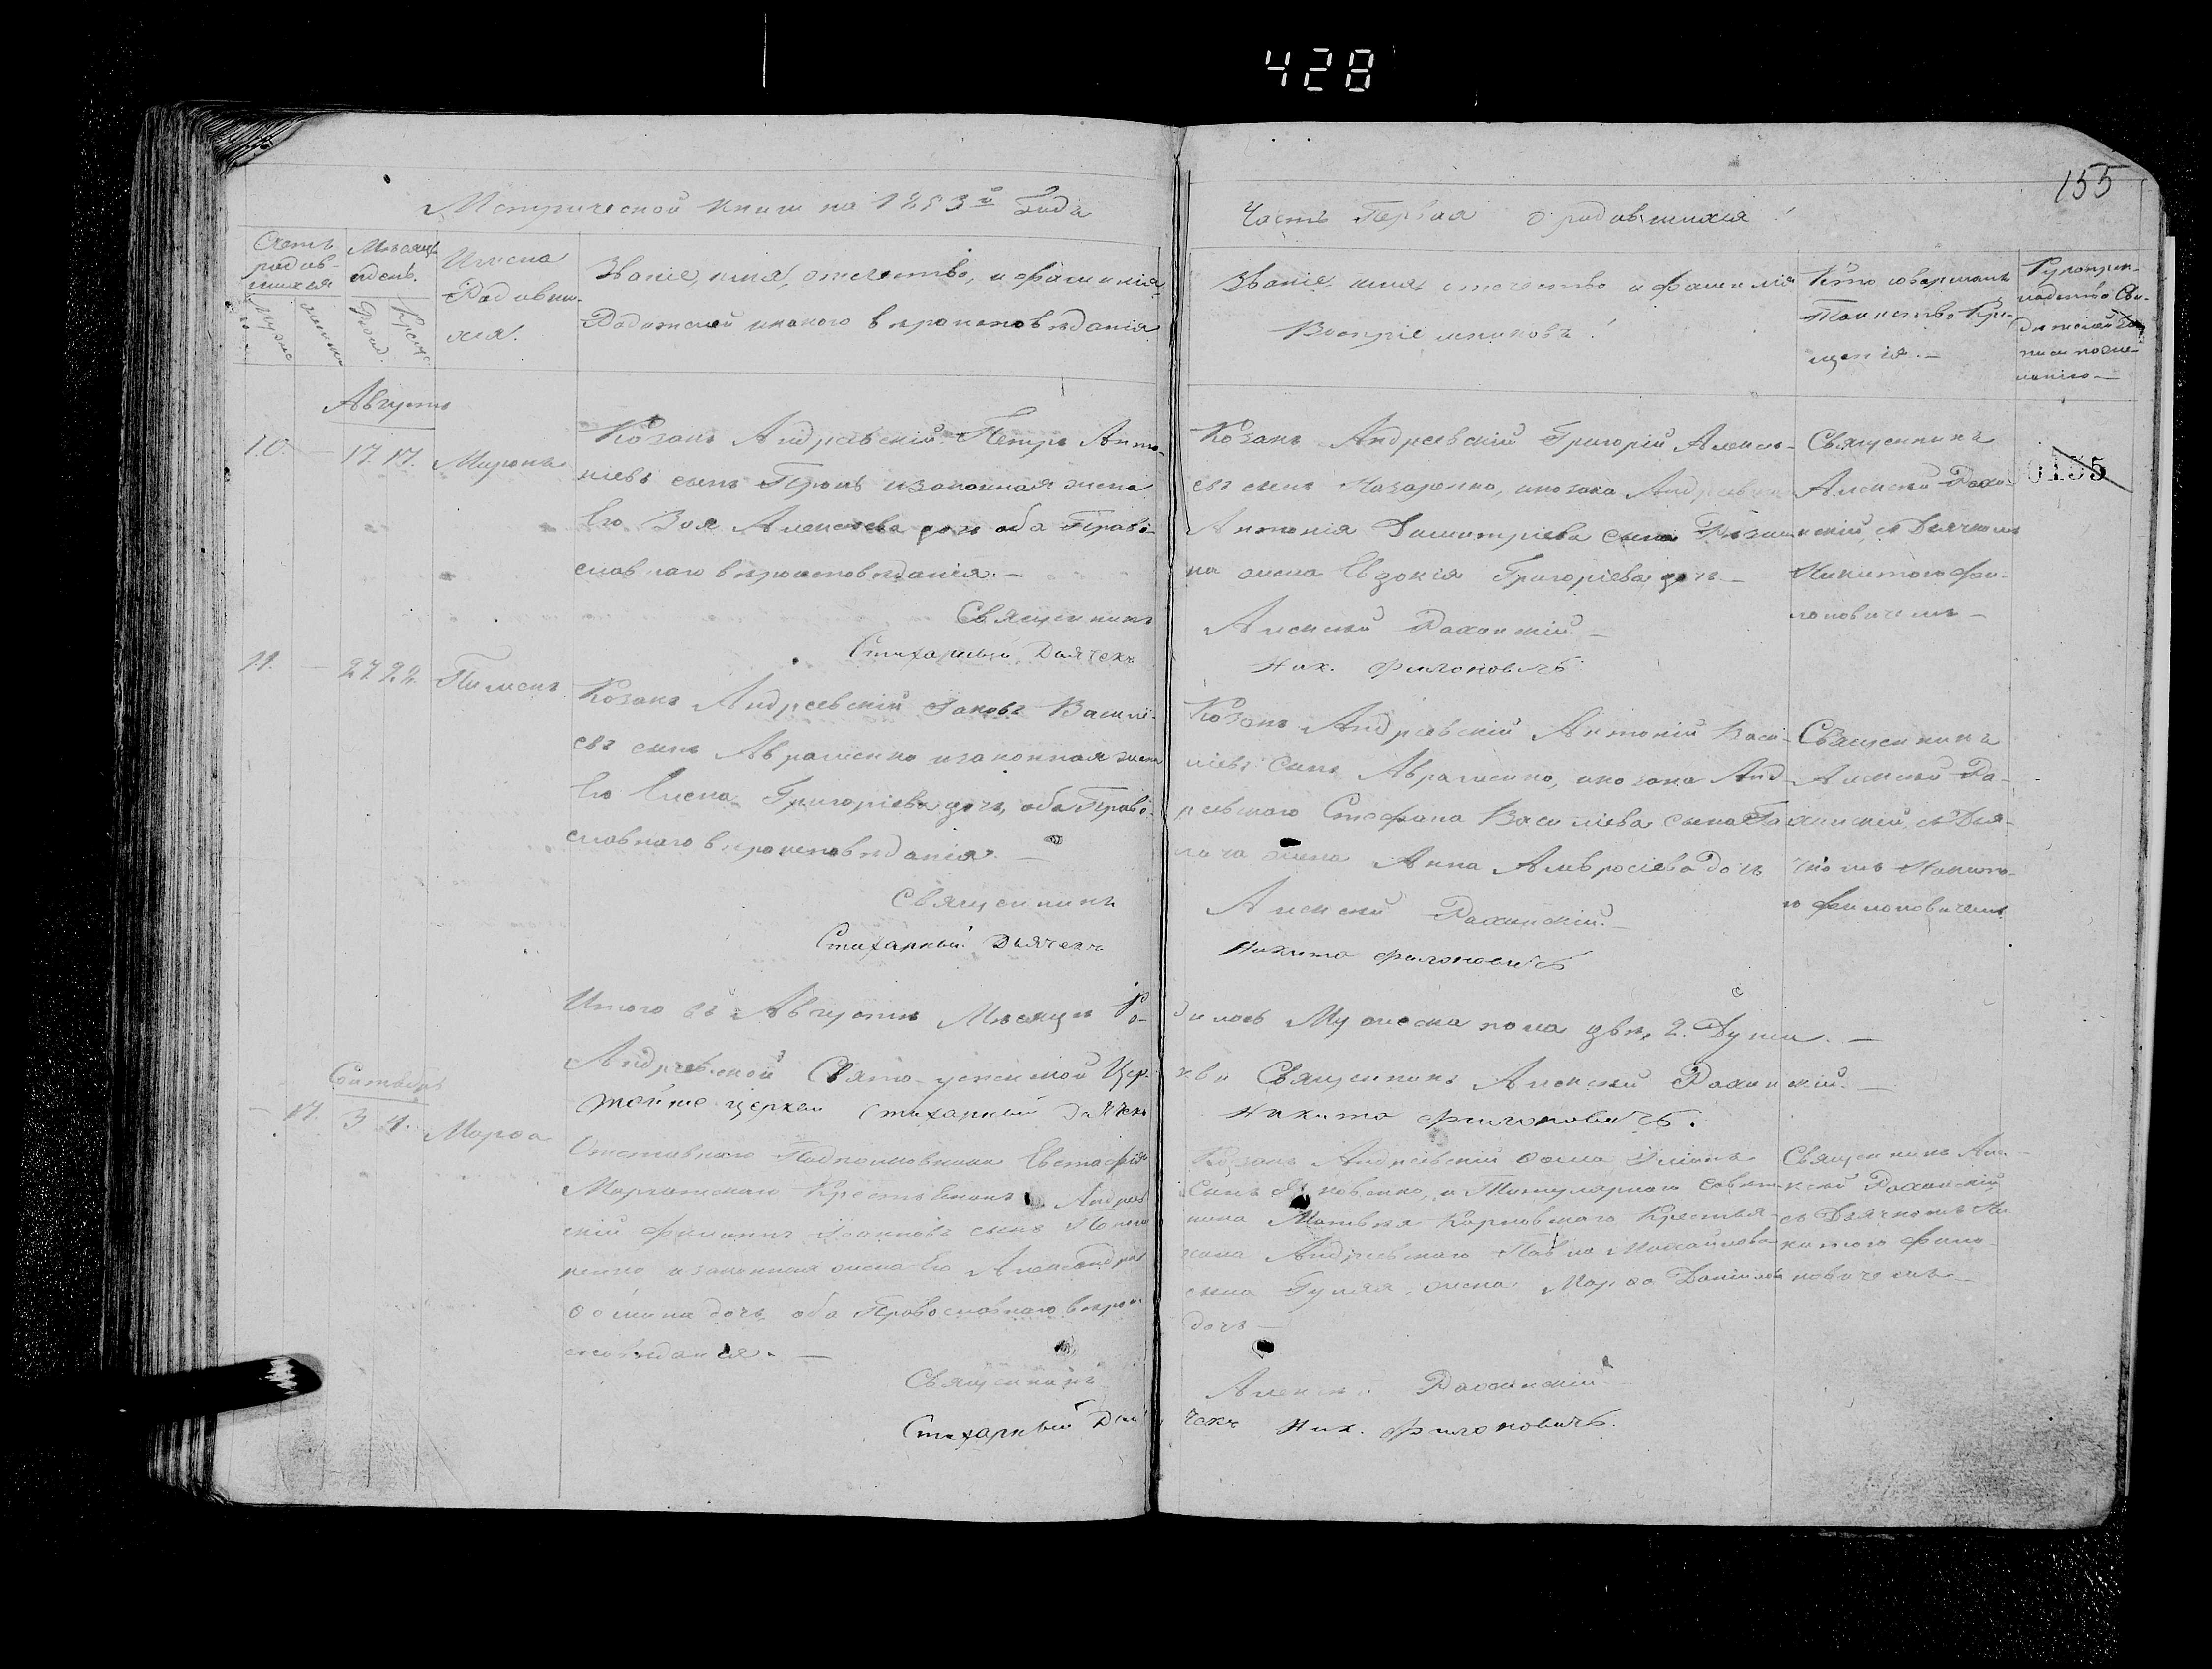 428
155
Метрической книги на 1853й Года
Часть Первая о родившихся
Счетъ родив-шихся
Мужеска
женска
Месяцъ и день.
Рожд.
Крещ.
Имена Родивши-хся.
Званіе, имя, отечество, и фамилія
Родителей и какого вероисповеданія
Званіе имя отечество и фамилія
Воспріемниковъ
Кто совершалъ
Таинство Кре-
щенія.—
Рукопри-
кладство Сви-
детелей
писи по же-
ланію—
Августъ
10. — 17. 17. Миронъ
Козакъ Андреевскій Петръ Анто-
ніевъ сынъ и законная жена
Его Зоя Алексеева дочь оба Право-
славнаго вероисповеданія.—
Священникъ
Стихарный Дьячекъ
Козакъ Андреевскій Григорій Алексе-
евъ сынъ Назаренко, и козака
Антонія Димитріева сына
на жена Евдокія Григоріева дочь—
Алексей Рахинскій—
Ник. Филоновичъ
Священникъ
Алексей Рахи-
нскій, съ Дьячкомъ
Никитою Фи-
лоновичемъ—
0155
11. — 22 22. Пименъ
Козакъ Андреевскій Іаковъ Василі-
евъ сынъ Авраменко и законная жена
Его Елена Григоріева дочь, оба Право-
славнаго вероисповеданія.—
Священникъ
Стихарный Дьячекъ
Козакъ Андреевскій Антоній Васи-
ліевъ Сынъ Авраменко, и козака Анд-
реевскаго Стефана Василіева сына
жена Анна Амвросіева дочь
Алексей Рахинскій.—
Никита Филоновичъ
Священникъ
Алексей Ра-
хинскій, съ Дья-
чкомъ Никито-
ю Филоновичемъ
Итого въ Августе Месяце Ро-
дилось Мужеска пола две, 2. Души.—
Андреевской Свято-успенской Цер-
кви Священникъ Алексей Рахинскій.—
Той же церкви Стихарный Дьячекъ
Никита Филоновичъ.
Сентябрь
— 17. 3 4. Марфа
Отставнаго Подполковника Евстафія
Крестьянинъ Андреев-
скій Филиппъ Іоанновъ сынъ
и законная жена Его Александра
Фомина дочь, оба Православнаго верои-
споведанія.—
Священникъ
Стихарный Дья
Козакъ Андреевскій Фома
Сынъ Яковенко, и Титулярнаго Совет-
ника Матвея Карповскаго Крестья-
нина Андреевскаго Павла Михайлова
сына Гуляя жена Марфа Даніилова
дочь—
Алексей Рахинскій
чекъ Ник. Филоновичъ.
Священникъ Але-
ксей Рахинскій
съ Дьячкомъ Ни-
китою Фило-
новичемъ—